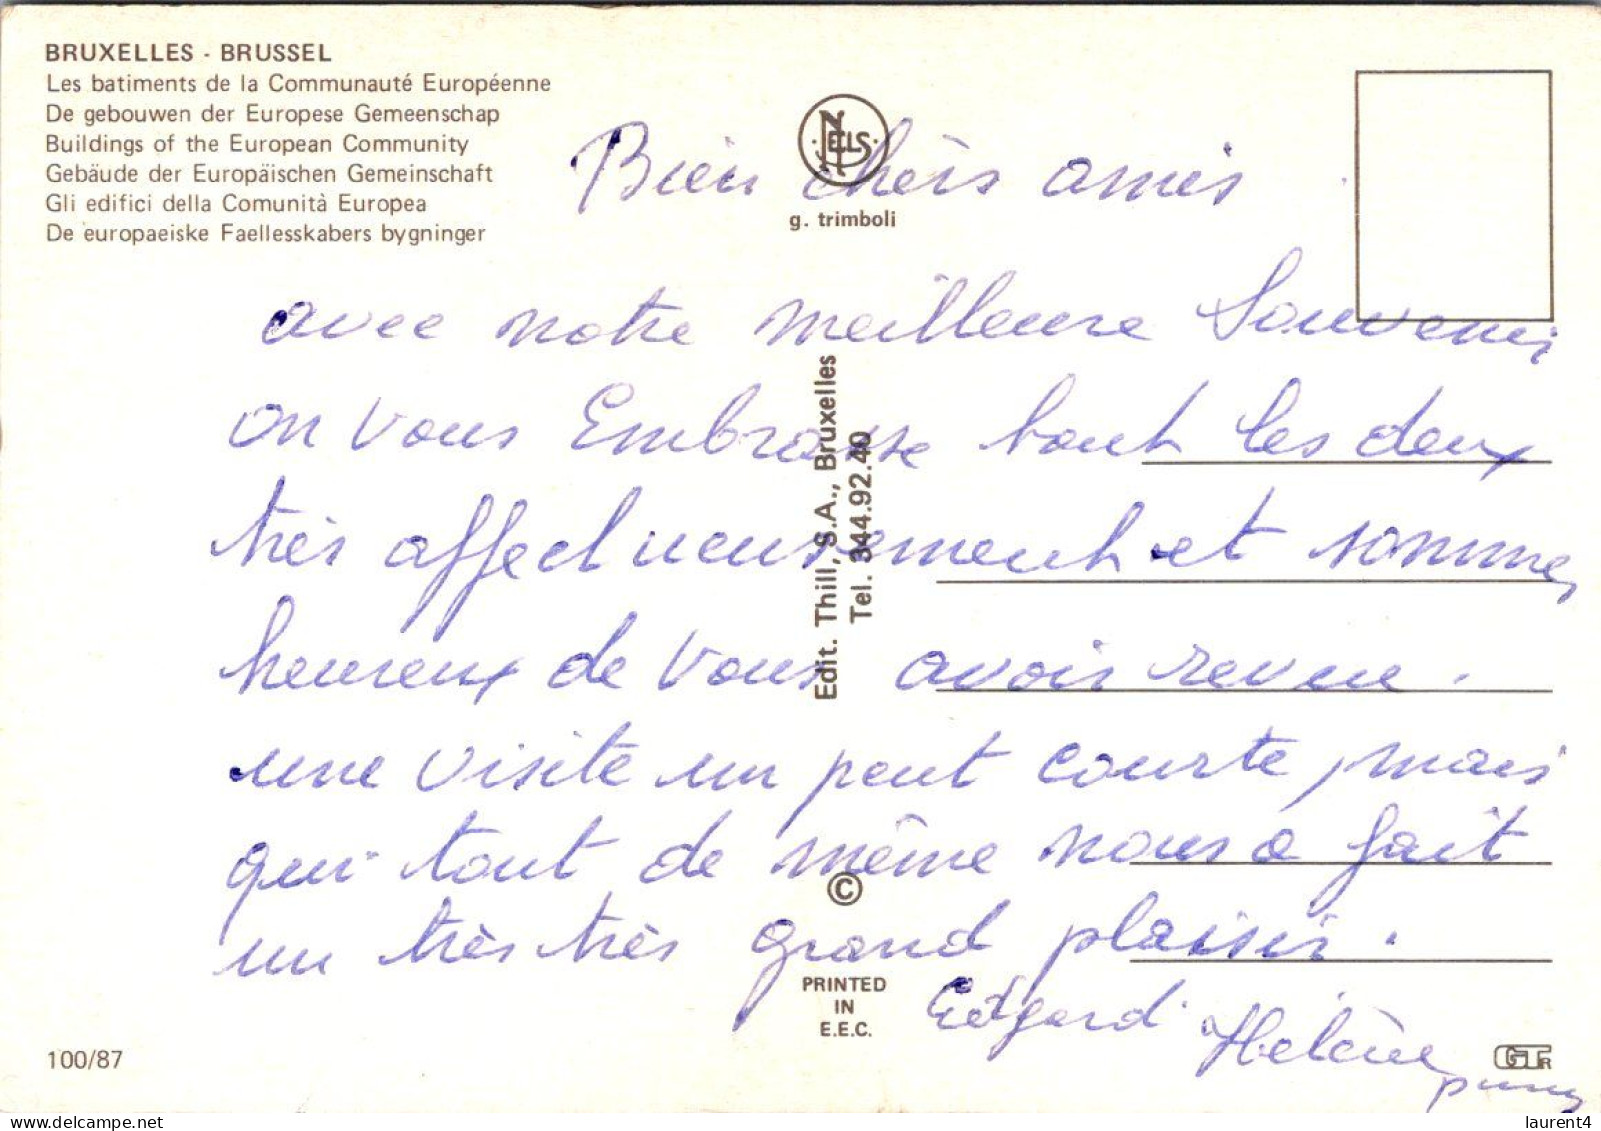 BRUXELLES - BRUSSEL
Les batiments de la Communauté Européenne
De gebouwen der Europese Gemeenschap
Buildings of the European Community
Gebäude der Europäischen Gemeinschaft
Gli edifici della Comunità Europea
De europaeiske Faellesskabers bygninger
NELS
g. trimboli
Bien chèrs amis
avec notre meilleure Souvenir
on vous Embrasse tout les deux
très affectueusement et sommes
heureux de vous avoir revue.
une visite un peut courte, mais
qui tout de même nous a fait
un très très grand plaisir.
Edgard Hélène
Edit. Thill, S.A., Bruxelles
Tel. 344.92.40
©
PRINTED
IN
E.E.C.
100/87
GTR
laurent4